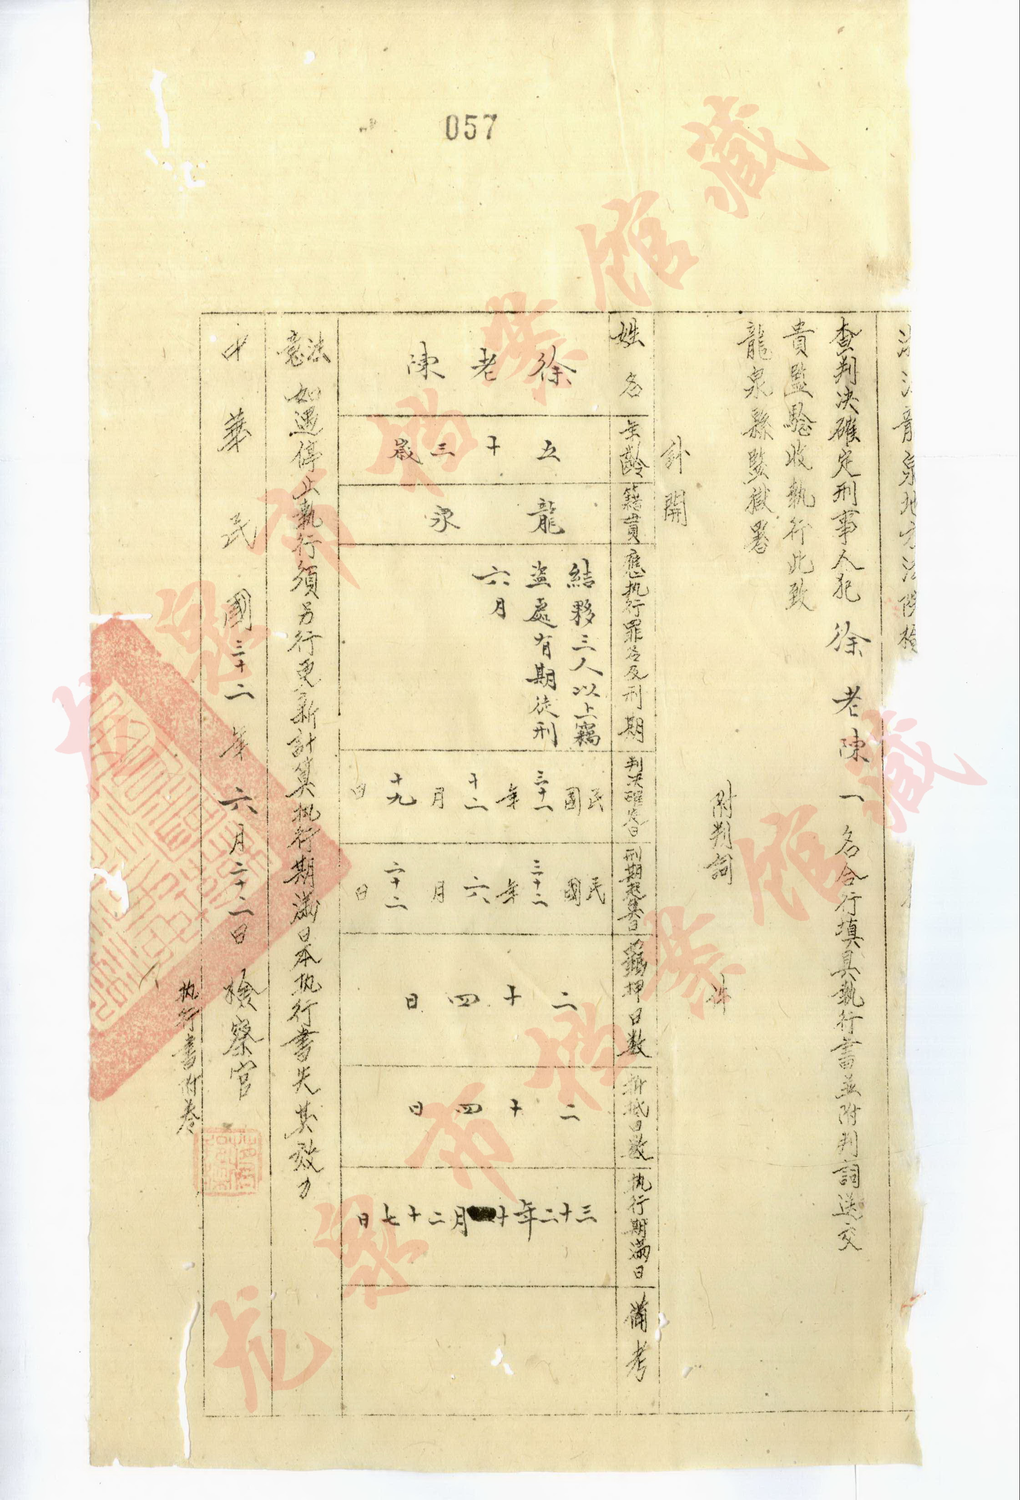 057
浙江龍泉地方法院檢
查判决確定刑事人犯徐老陳一名合行填具執行書並附判詞送交
貴監驗收執行此致
龍泉縣監獄署
附判詞 件
計開
姓名
年齡
籍貫
應执行罪名及刑期
判决確定日
刑期起算日
羈押日数
折抵日数
执行期滿日
備考
徐老陳
五十三歲
龍泉
結夥三人以上竊
盜處有期徒刑
六月
民國三十一年十二月十九日
民國三十二年六月二十二日
二十四日
二十四日
三十二年十月二十七日
注意
如遇停止執行須另行更新計算执行期滿日本执行書失其效力
中華民國三十二年六月二十二日檢察官
执行書附卷
龙泉市档案馆藏
龙泉市档案馆藏